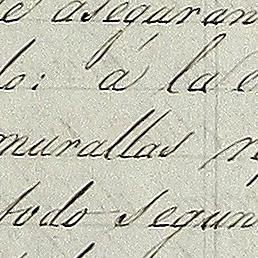 aseguran
lo: á la
murallas
todo segun